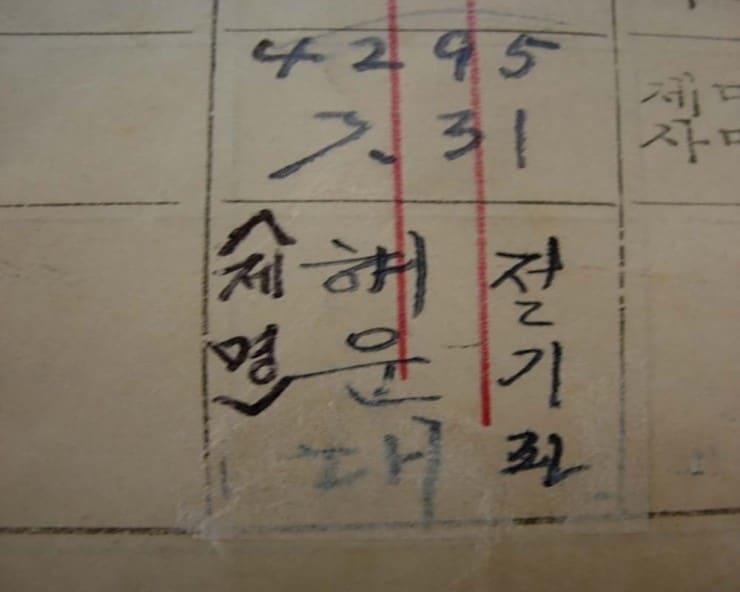 4295
7.31
절기죄
해운대
<제명>
제
자